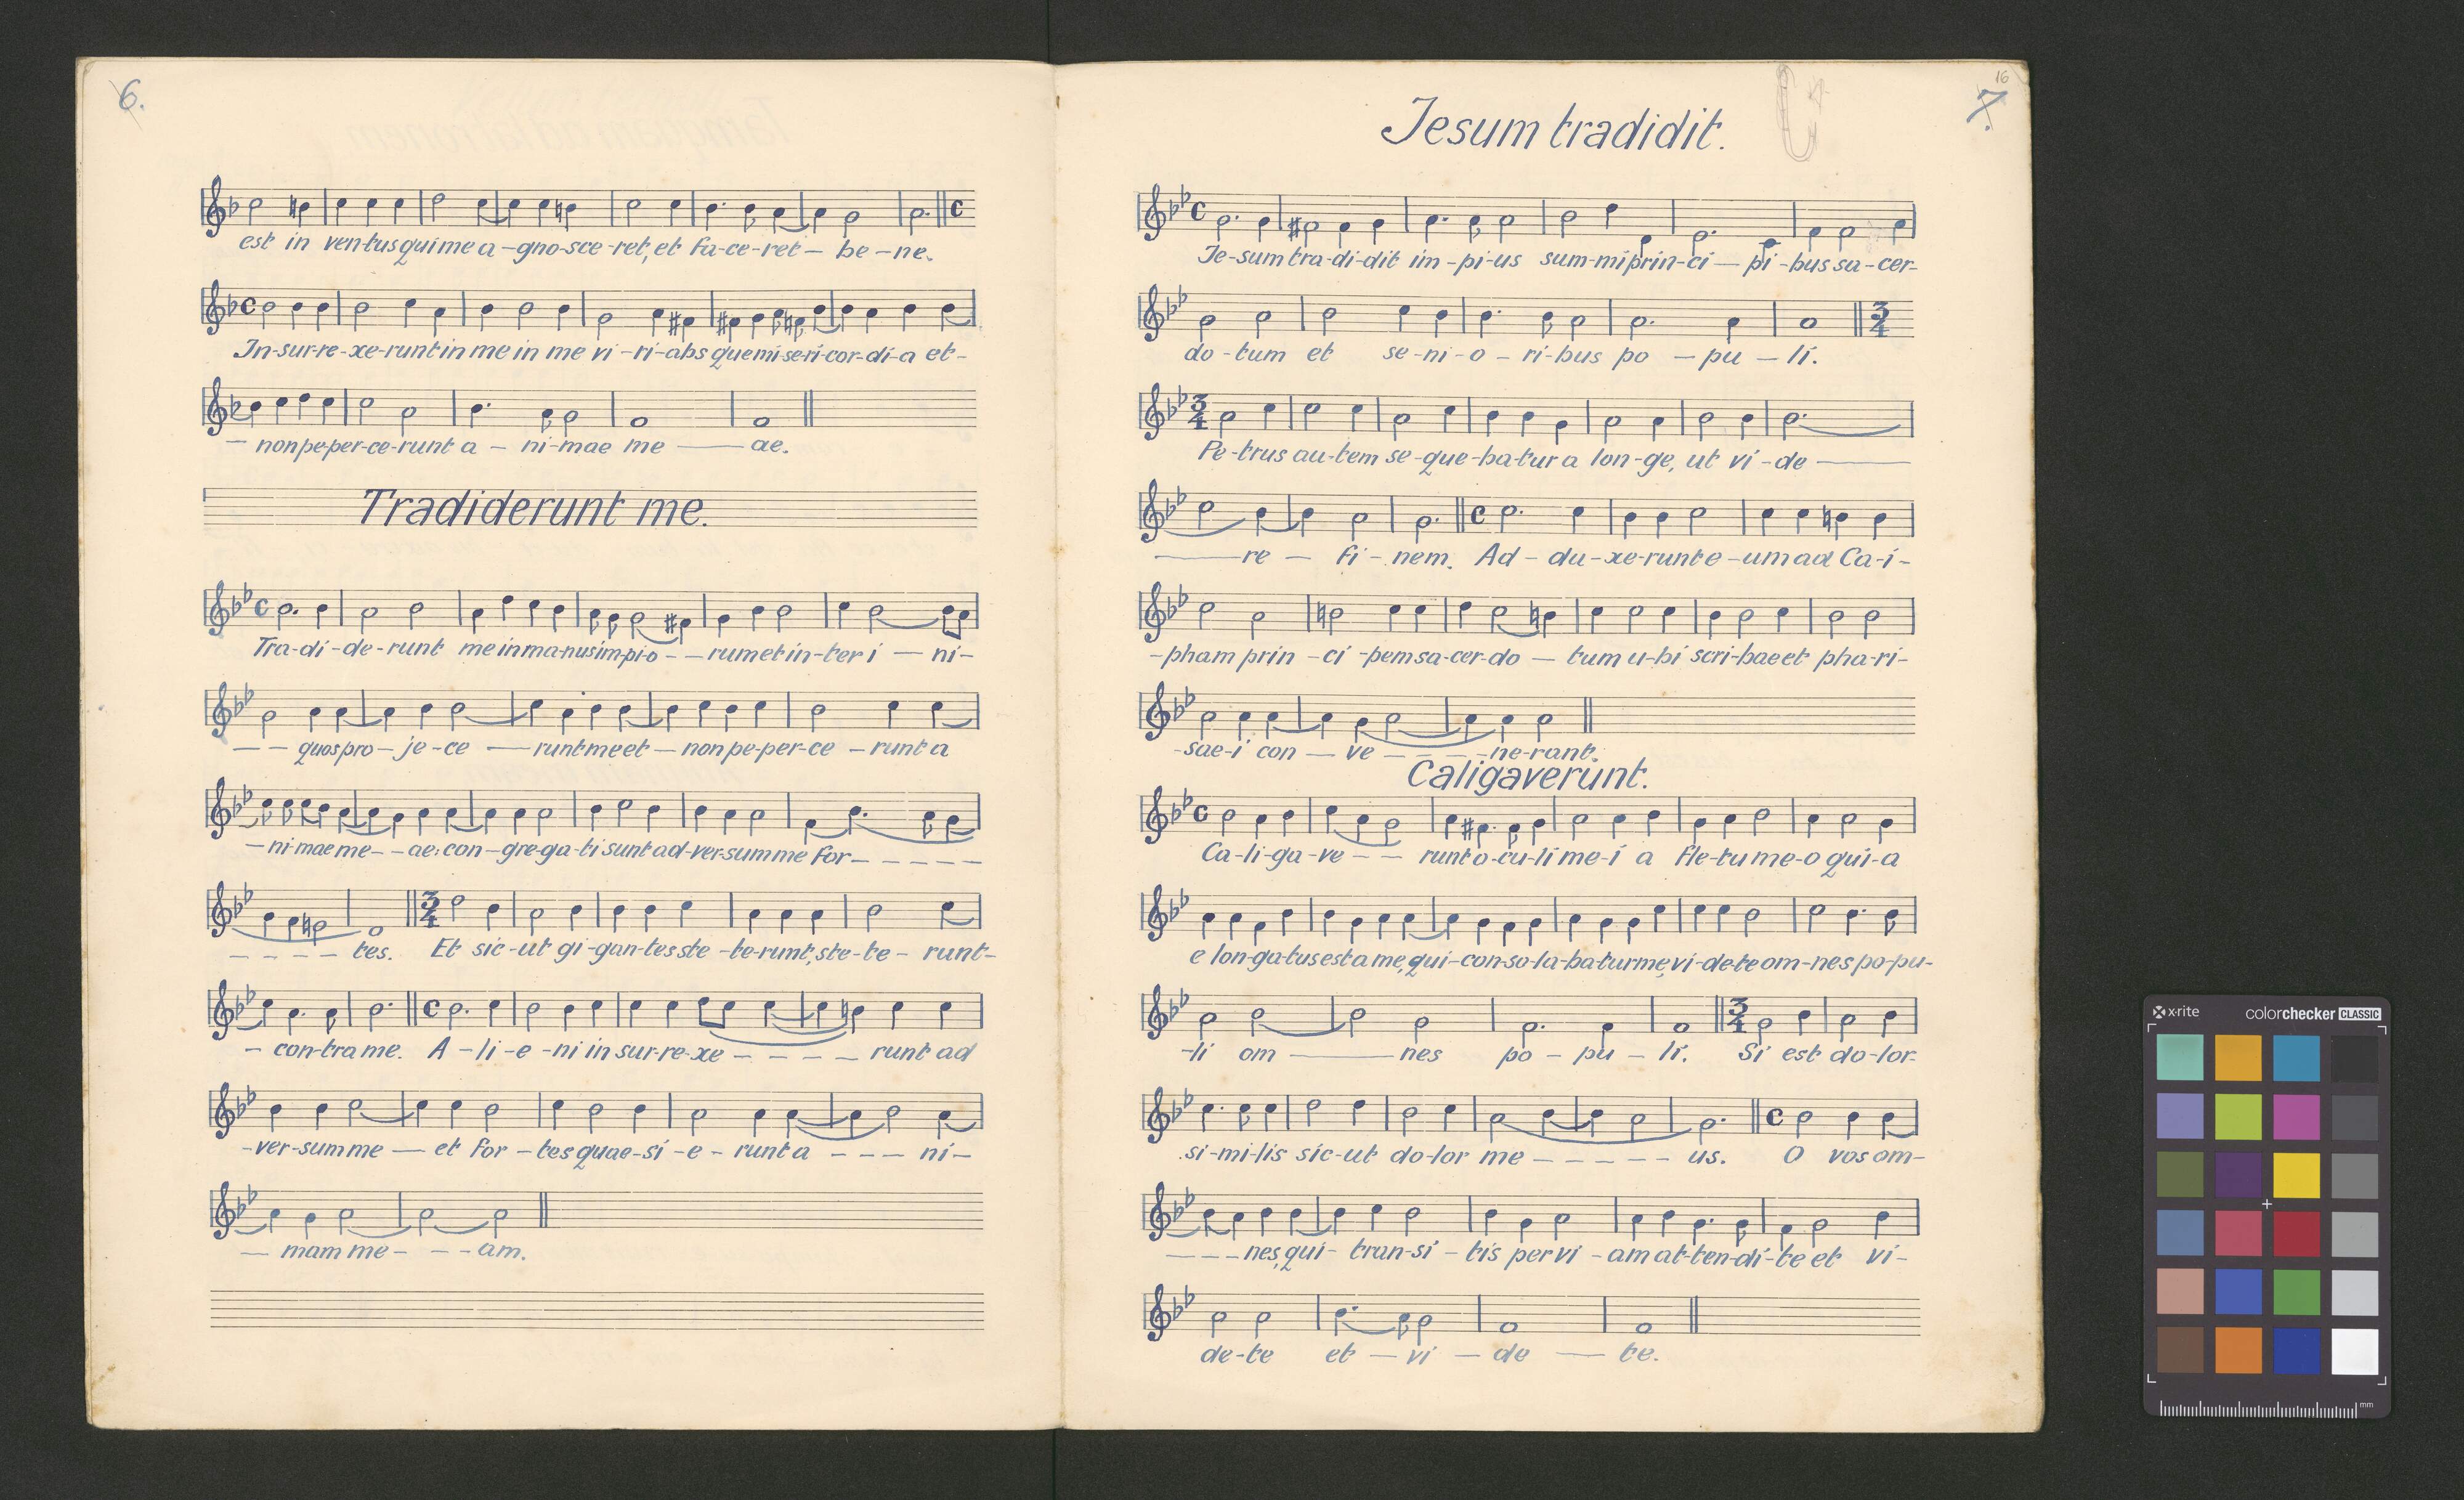 6.
est in ven-tus qui me a-gno-sce-ret, et fa-ce-ret - be-ne.
In-sur-re-xe-runt in me in me vi-ri-abs que mi-se-ri-cor-di-a et-
- non pe-per-ce-runt a - ni-mae me — ae.
Tradiderunt me.
Tra-di-de-runt me in ma-nus im-pi-o - - rum et in-ter i — ni-
- - quos pro - je-ce — runt me et - non pe-per-ce - runt a
- ni-mae me - - ae: con-gre-ga-ti sunt ad-ver-sum me for - - - - -
- - - - tes. Et sic-ut gi-gan-tes ste-te-runt, ste-te- runt-
- con-tra me. A-li-e-ni in sur-re-xe - - - - runt ad
-ver-sum me — et for-tes quae-si-e-runt a - - - ni-
— mam me - - - am.
16
7.
Jesum tradidit.
Je-sum tra-di-dit im-pi-us sum-mi prin-ci — pi-bus sa-cer-
do-tum et se-ni-o-ri-bus po — pu — li.
Pe-trus au-tem se-que-ba-tur a lon-ge, ut vi-de —
— re - fi-nem. Ad-du-xe-runt e-um ad Ca-i-
-pham prin-ci-pem sa-cer-do — tum u-bi scri-bae et pha-ri-
-sae-i con — ve - - - -ne-rant.
Caligaverunt.
Ca-li-ga-ve - - runt o-cu-li me-i a fle-tu me-o qui-a
e lon-ga-tus est a me, qui-con-so-la-ba-tur me, vi-de-te om-nes po-pu-
-li om — nes po-pu-li. Si est do-lor-
si-mi-lis sic-ut do-lor me - - - - - us. O vos om-
- - - nes, qui- tran-si-tis per vi-am at-ten-di-te et vi-
de-te et — vi — de — te.
x-rite colorchecker CLASSIC
mm